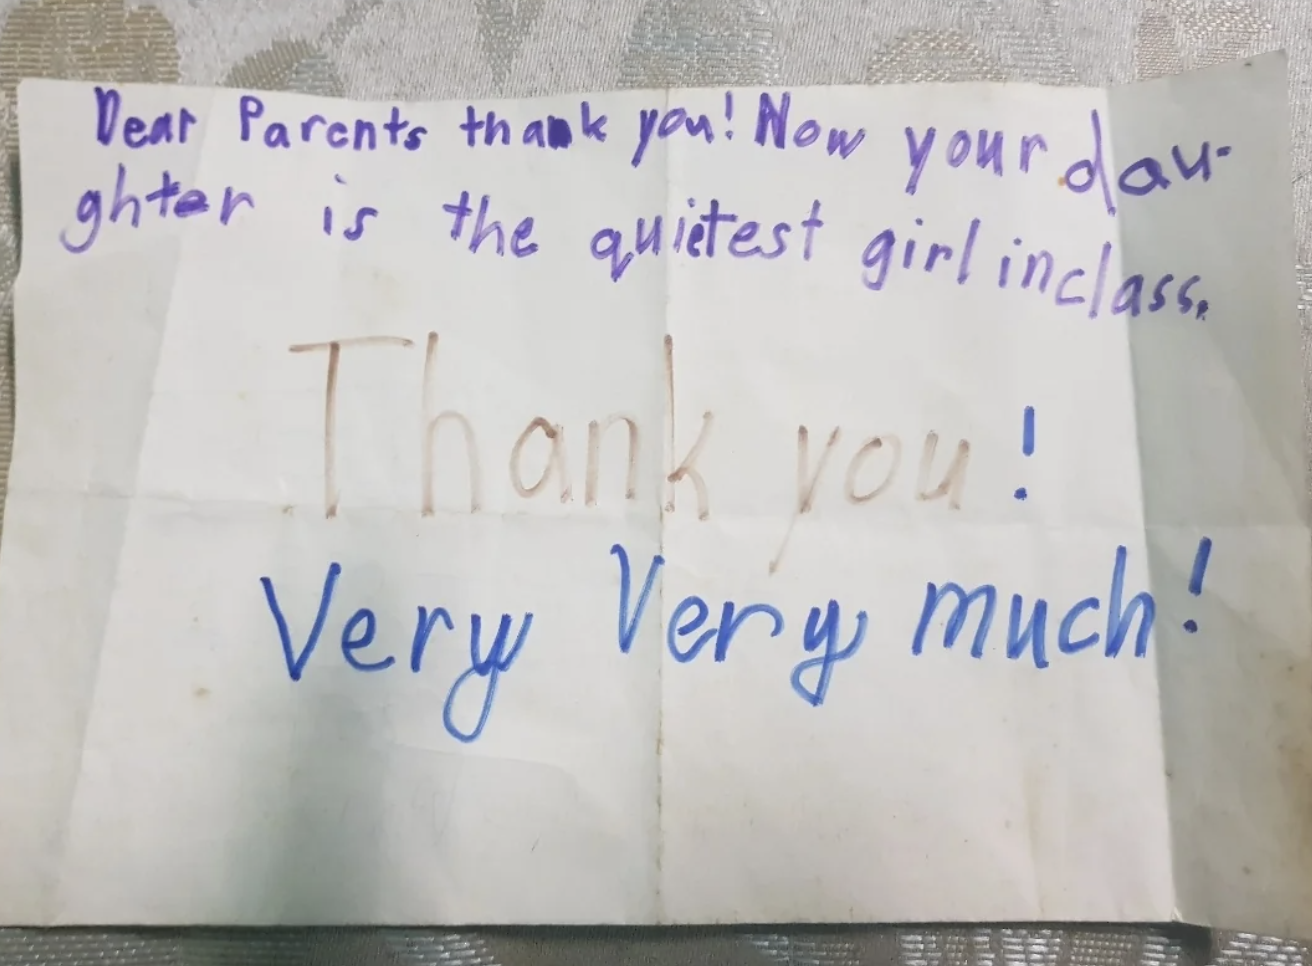 Dear Parents thank you! Now your dau-
ghter is the quietest girl in class.
Thank you!
Very Very much!